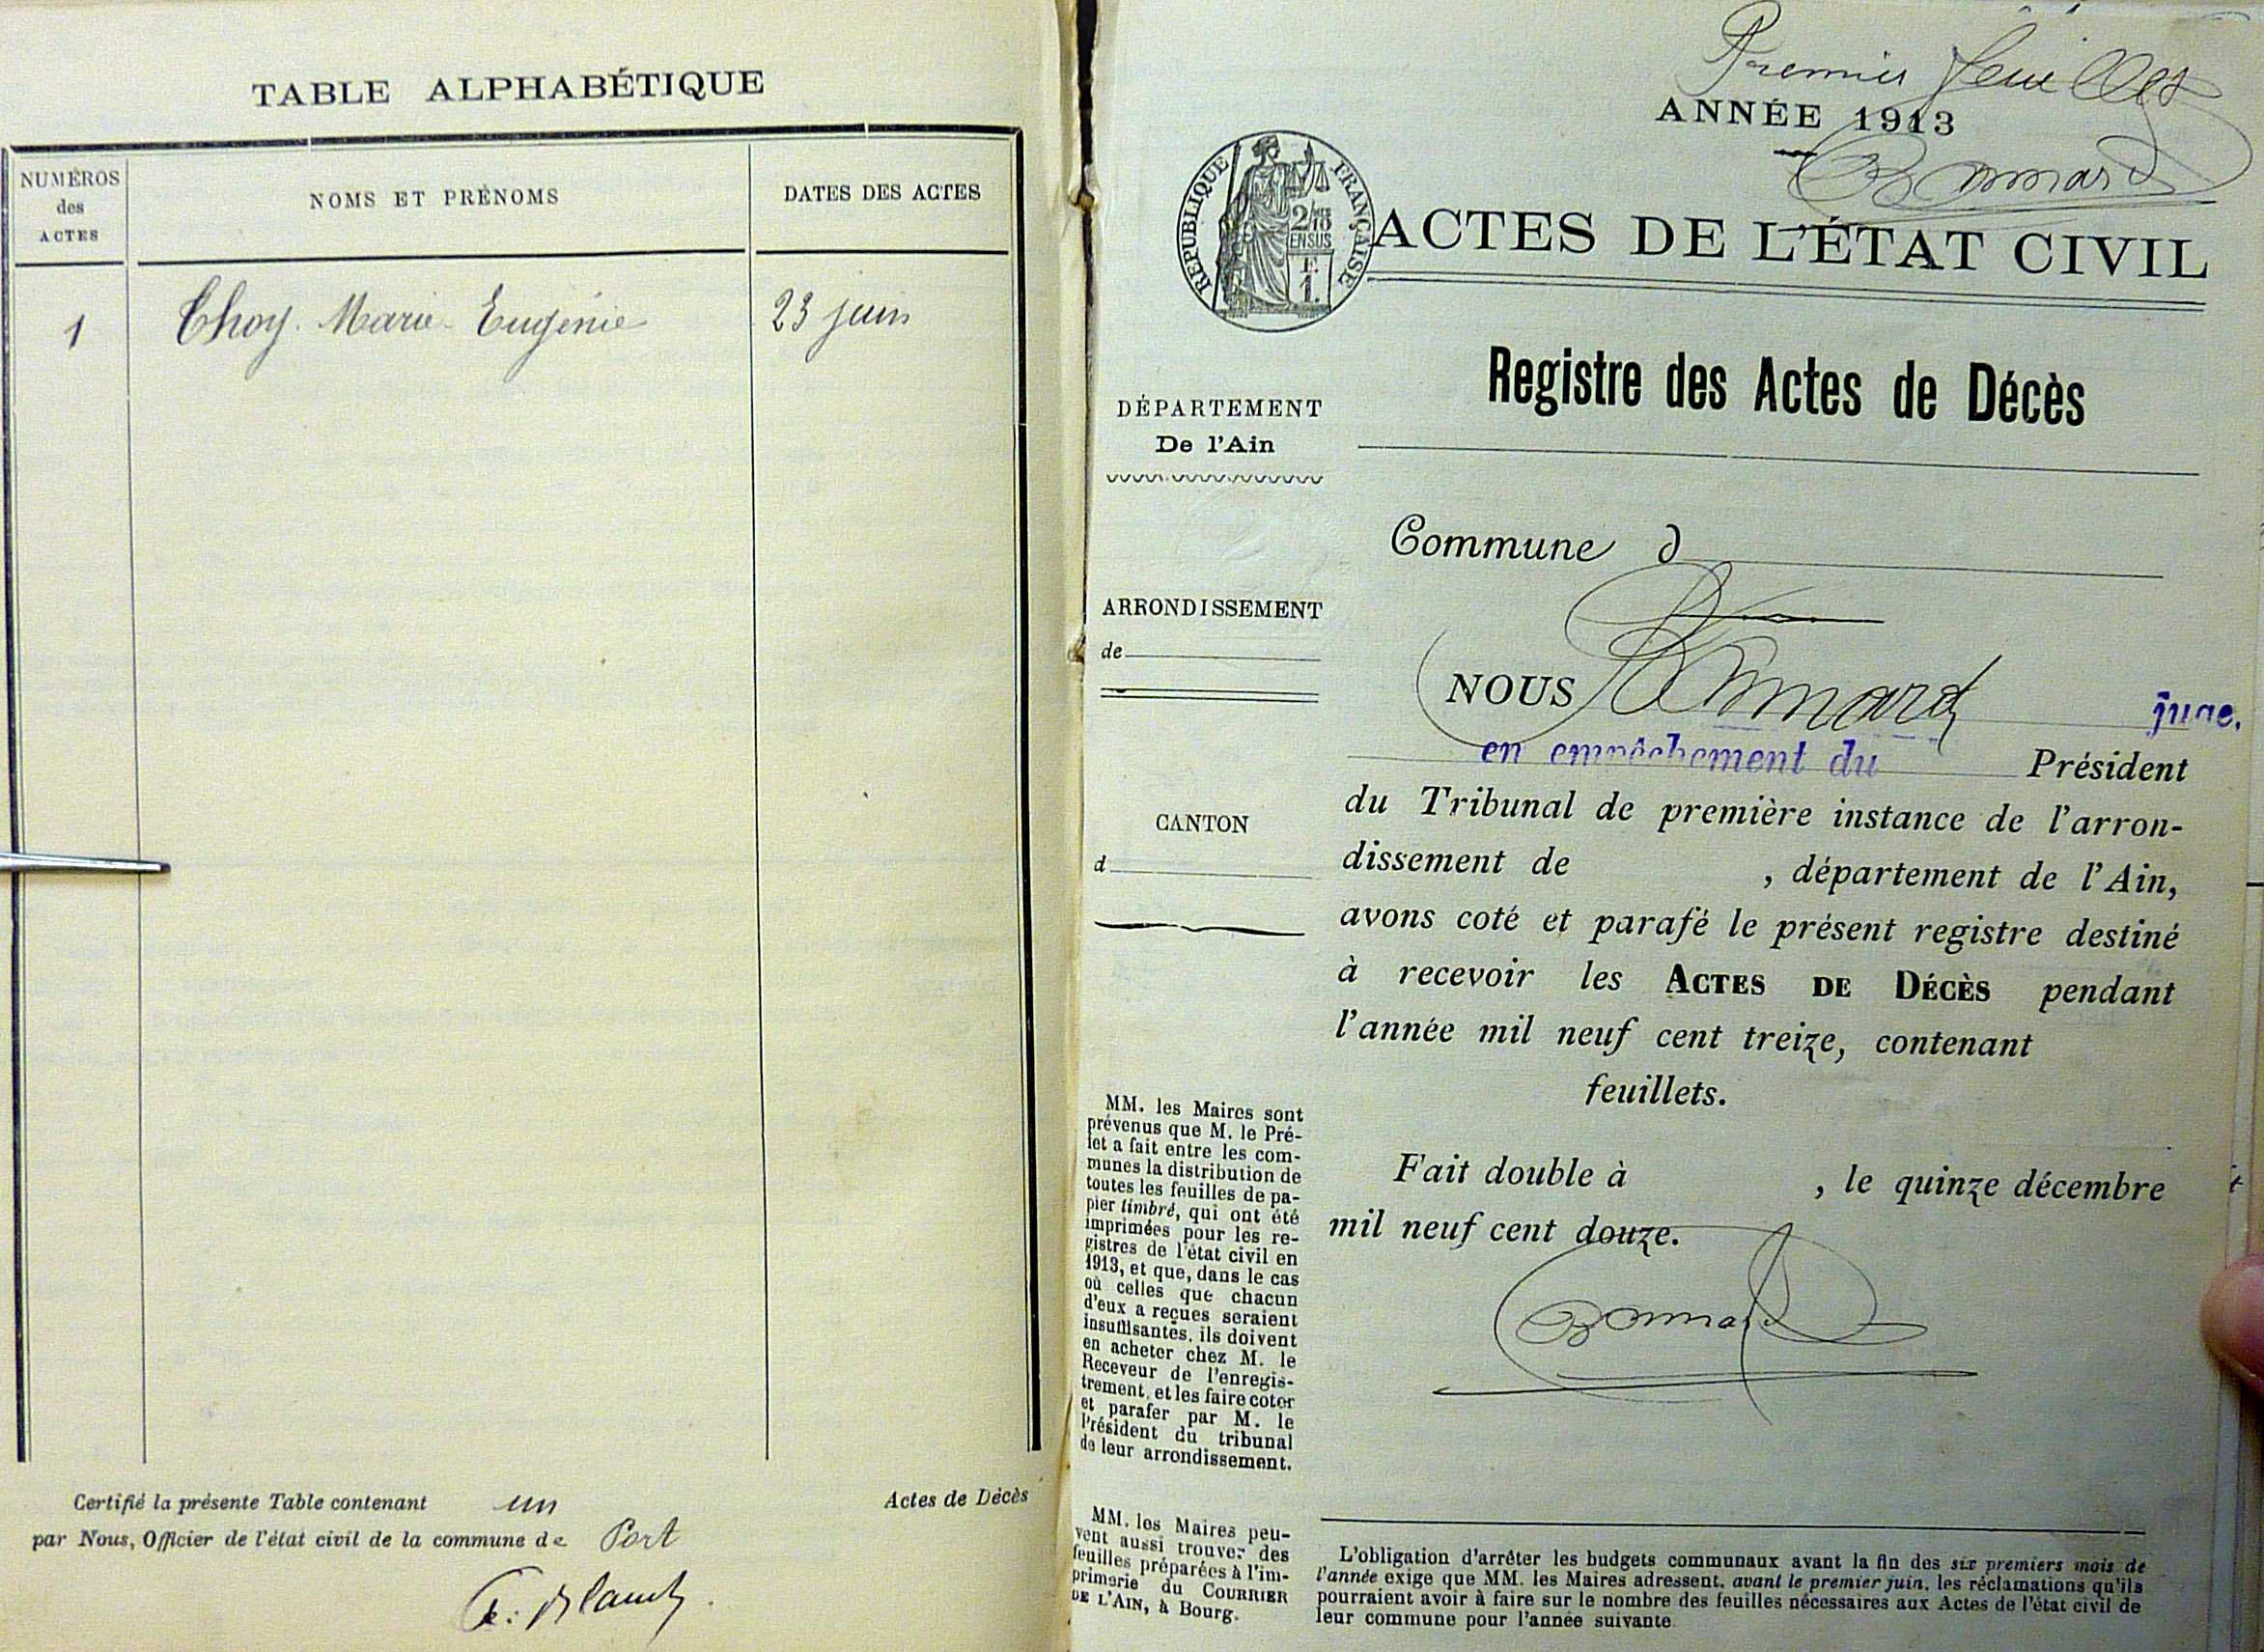 TABLE ALPHABÉTIQUE
NUMÉROS
des
ACTES
NOMS ET PRÉNOMS
DATES DES ACTES
1
Choy Marie Eugénie
23 juin
Certifié la présente Table contenant un Actes de Décès
par Nous, Officier de l'état civil de la commune de Port
Premier feuillet
ANNÉE 1913
Bonnard
RÉPUBLIQUE FRANÇAISE
2/10
EN SUS
F.
1.
ACTES DE L'ÉTAT CIVIL
Registre des Actes de Décès
DÉPARTEMENT
De l'Ain
Commune d
ARRONDISSEMENT
de
NOUS Bonnard juge.
en empêchement du Président
CANTON
d
du Tribunal de première instance de l'arron-
dissement de , département de l'Ain,
avons coté et parafé le présent registre destiné
à recevoir les ACTES DE DÉCÈS pendant
l'année mil neuf cent treize, contenant
feuillets.
Fait double à , le quinze décembre
mil neuf cent douze.
Bonnard
MM. les Maires sont
prévenus que M. le Pré-
fet a fait entre les com-
munes la distribution de
toutes les feuilles de pa-
pier timbré, qui ont été
imprimées pour les re-
gistres de l'état civil en
1913, et que, dans le cas
où celles que chacun
d'eux a reçues seraient
insuffisantes, ils doivent
en acheter chez M. le
Receveur de l'enregis-
trement, et les faire coter
et parafer par M. le
Président du tribunal
de leur arrondissement.
MM. les Maires peu-
vent aussi trouver des
feuilles préparées à l'im-
primerie du COURRIER
DE L'AIN, à Bourg.
L'obligation d'arrêter les budgets communaux avant la fin des six premiers mois de
l'année exige que MM. les Maires adressent, avant le premier juin, les réclamations qu'ils
pourraient avoir à faire sur le nombre des feuilles nécessaires aux Actes de l'état civil de
leur commune pour l'année suivante.